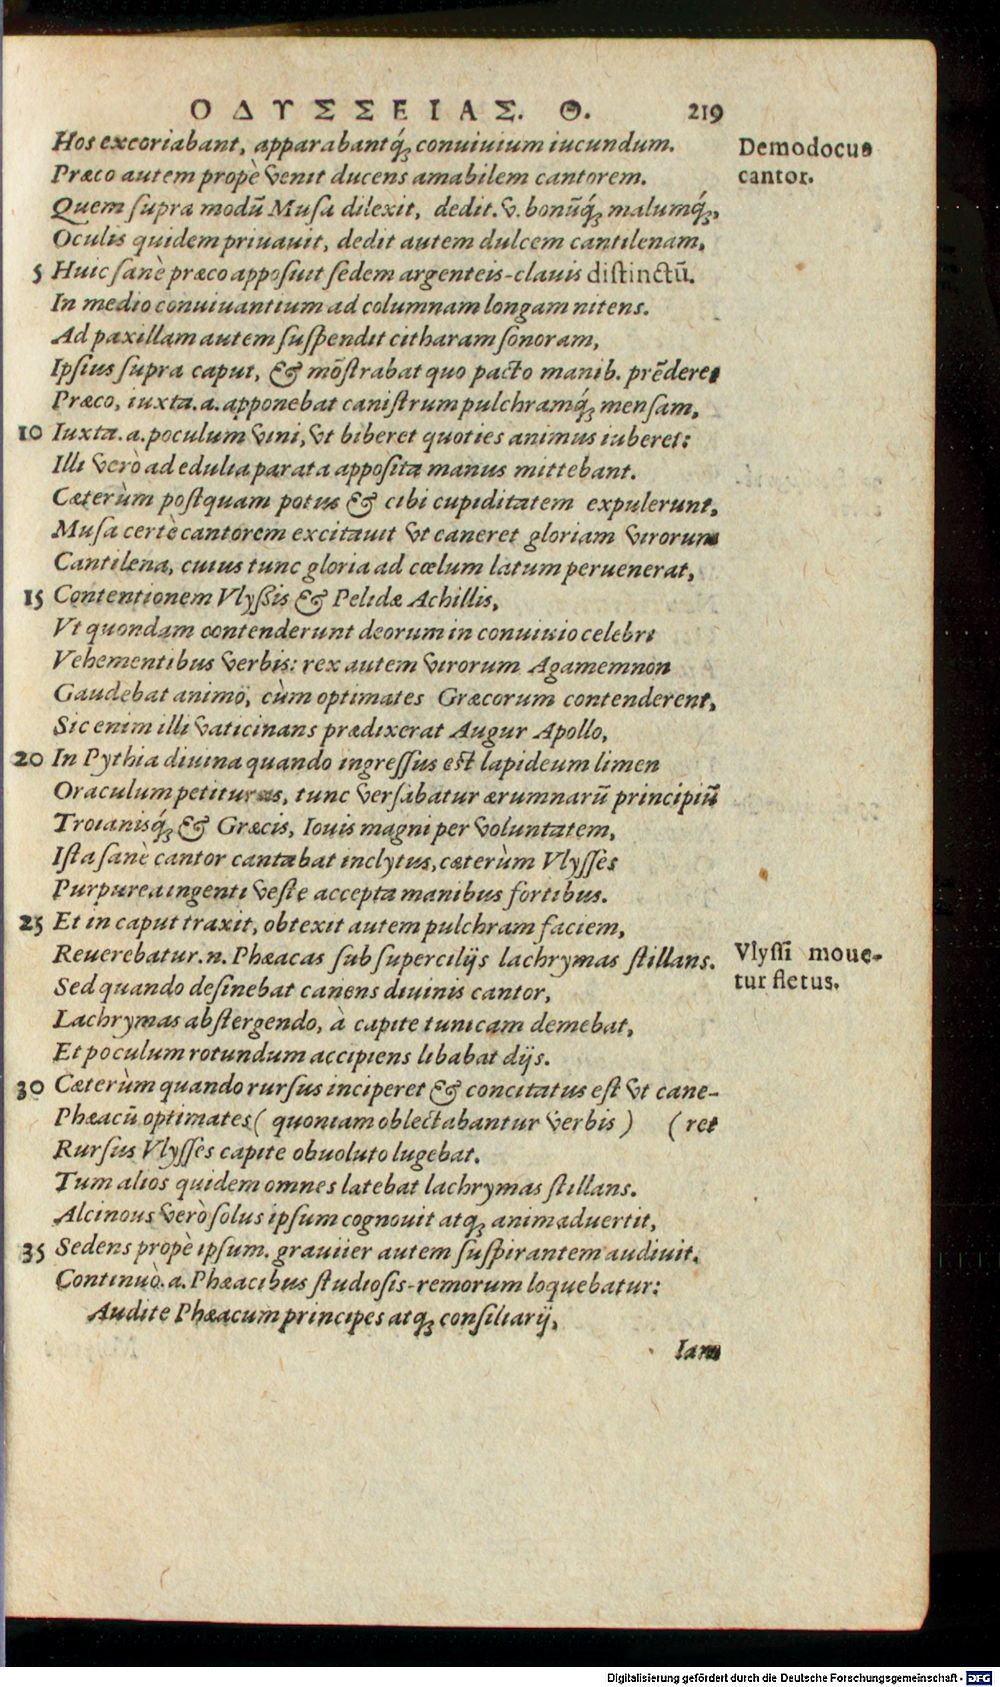 ΟΔΥΣΣΕΙΑΣ. Θ. 219
Hos excoriabant, apparabantq́; conuiuium iucundum.
Præco autem propè venit ducens amabilem cantorem.
Demodocus
cantor.
Quem supra modũ Musa dilexit, dedit. v. bonũq́; malumq́;,
Oculis quidem priuauit, dedit autem dulcem cantilenam,
5 Huic sanè præco apposuit sedem argenteis-clauis distinctũ.
In medio conuiuantium ad columnam longam nitens.
Ad paxillam autem suspendit citharam sonoram,
Ipsius supra caput, & mõstrabat quo pacto manib. prẽderet
Præco, iuxta. a. apponebat canistrum pulchramq́; mensam,
10 Iuxta. a. poculum vini, vt biberet quoties animus iuberet:
Illi verò ad edulia parata apposita manus mittebant.
Cæterùm postquam potus & cibi cupiditatem expulerunt,
Musa certè cantorem excitauit vt caneret gloriam virorum
Cantilena, cuius tunc gloria ad cœlum latum peruenerat,
15 Contentionem Vlyßis & Pelidæ Achillis,
Vt quondam contenderunt deorum in conuiuio celebri
Vehementibus verbis: rex autem virorum Agamemnon
Gaudebat animo, cùm optimates Græcorum contenderent,
Sic enim illi vaticinans prædixerat Augur Apollo,
20 In Pythia diuina quando ingressus est lapideum limen
Oraculum petiturus, tunc versabatur ærumnarũ principiũ
Troianisq́; & Græcis, Iouis magni per voluntatem,
Ista sanè cantor cantabat inclytus, cæterùm Vlysses
Purpurea ingenti veste accepta manibus fortibus.
25 Et in caput traxit, obtexit autem pulchram faciem,
Reuerebatur. n. Phæacas sub supercilijs lachrymas stillans.
Vlyssi moue-
tur fletus.
Sed quando desinebat canens diuinis cantor,
Lachrymas abstergendo, à capite tunicam demebat,
Et poculum rotundum accipiens libabat dijs.
30 Cæterùm quando rursus inciperet & concitatus est vt cane-
Phæacũ optimates ( quoniam oblectabantur verbis ) ( ret
Rursus Vlysses capite obuoluto lugebat.
Tum alios quidem omnes latebat lachrymas stillans.
Alcinous verò solus ipsum cognouit atq; animaduertit,
35 Sedens propè ipsum. grauiier autem suspirantem audiuit.
Continuò. a. Phæacibus studiosis-remorum loquebatur:
Audite Phæacum principes atq; consiliarij,
Iam
Digitalisierung gefördert durch die Deutsche Forschungsgemeinschaft - DFG